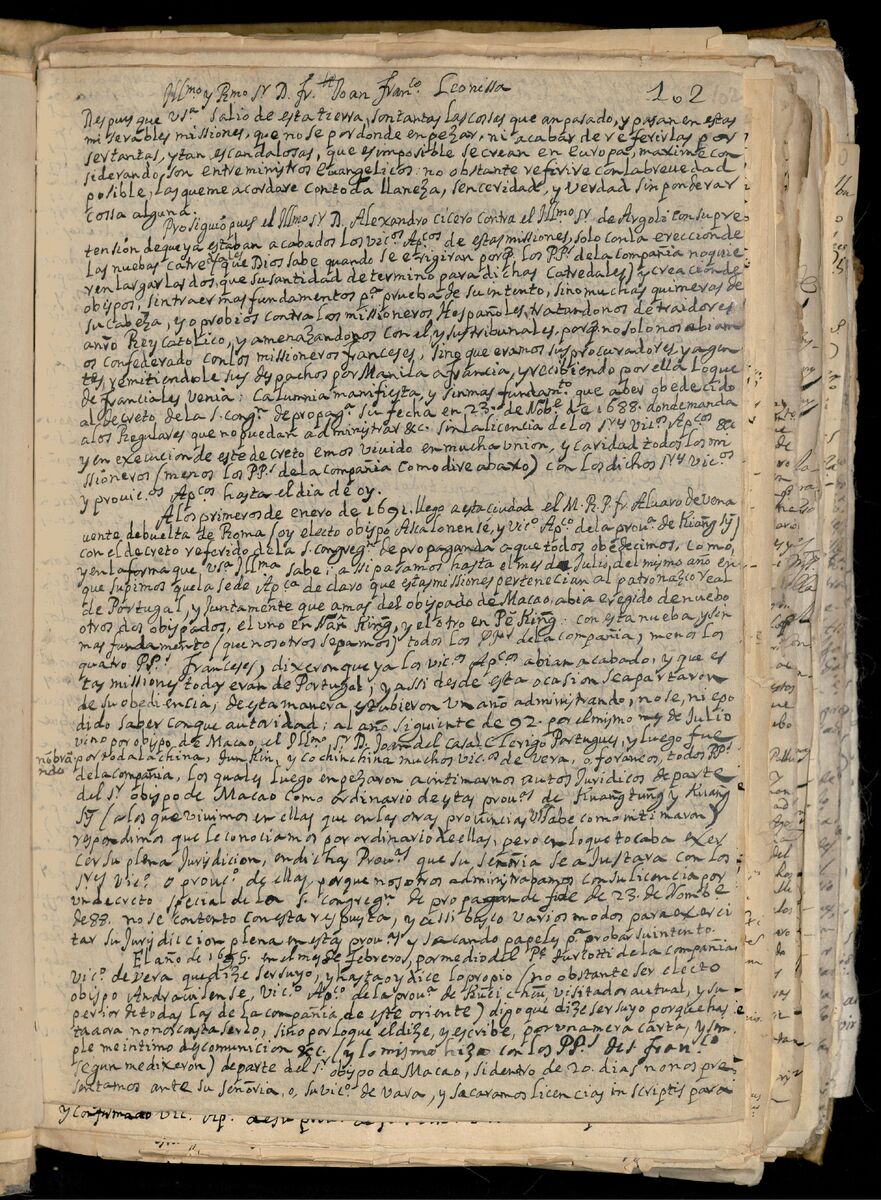 Jll.mo y R.mo S.r D. fr. Joan Fran.co Leonissa 102
Despues que V.sa salio de esta tierra, son tantas las cosses que an pasado, y pasan en estas
miserables missiones, que no se por donde enpezar, ni acabar de referirlas por
ser tantas, y tan escandalosas, que es imposible se crean en Europa, maxime con
siderando, son entre ministros Evangelicos: no obstante refirire con la brevedad
posible, las que me acordare con toda llaneza, senceridad, y verdad sin ponderar
cossa alguna.
Prosiguio pues el Jll.mo S.r D. Alexandro Cicero contra el Jll.mo S.r de Argoli con su pre
tension de que ya estaban acabados los Vic.os Ap.cos de estas missiones, solo con la ereccion de
las nuebas catredales (que Dios sabe quando se erigiran porq los PP.s de la compañia no quie
ren largar las dos, que su santidad determino para dichas Catredales) y creacion de
obispos, sin traer mas fundamentos p.a prueba de su intento, sino muchas quimeras de
su cabeza, y oprobios contra los missioneros Hespañoles, tratandonos de traidores
a nro Rey Catolico, y amenazandonos con el, y sus tribunales, porq no solo nos abiam
os confederado con los missioneros franceses, sino que eramos sus procuradores, y agen
tes, remitiendole sus despachos por Manila a francia, y reciviendo por ella lo que
de francia les venia: Calumnia manifiesta, y sin mas fundam.to que aber obedecido
al decreto de la S. cong.n de propag.da su fecha en 23. de Nob.e de 1688. donde manda
a los Regulares que no puedan administrar &c. sin la licencia de los S.res Vic.os Ap.cos &c
y en execucion de este decreto emos vivido en mucha union, y caridad todos los mi
ssioneros (menos los PP.s de la compañia como dire abaxo) con los dichos S.res Vic.os
y provic.os Ap.cos hasta el dia de oy.
A los primeros de enero de 1691. llego a esta ciudad el M. R. P. fr. Alvaro de Vena
vente de buelta de Roma (oy electo obispo Ascalonense, y Vic.o Ap.co de la prov.a de Kiang Sy)
con el decreto referido de la S. congreg.n de propaganda a que todos obedecimos, como,
y en la forma que V.sa Jllma sabe: assi pasamos hasta el mes de Julio, del mysmo año en
que supimos que la sede Ap.ca declaro que estas missiones pertenecian al patronazco real
de Portugal, y Juntamente que amas del obispado de Macao, abia eregido de nuebo
otros dos obispados, el uno en Nan King, y el otro en Pe King: con esta nueba, y sin
mas fundamento (que nosotros sepamos) todos los PP.s de la compañia, menos los
quatro PP.s franceses, dixeron que ya los Vic.os Ap.cos abian acabado, y que es
tas missiones todas eran de Portugal; y assi desde esta ocasion se apartaron
de su obediencia, de esta manera estubieron un año administrando, no se, ni e po
dido saber con que autoridad: al año siguiente de 92. por el mismo mes de Julio
vino por obispo de Macao, el Jll.mo S.r D. Joan del Casal Clerigo Portugues, y luego fue
nobrã
ndo
por toda la china, Junkin, y cochinchina muchos vic.os de vera, o foraneos, todos PP.s
de la compañia, los quales luego enpezaron a intimarnos autos Juridicos de parte
del S.r obispo de Macao como ordinario de estas prov.as de Kuang tung y Kuang
Sy (a los que vivimos en ellas que en las otras provincias V.S. sabe como intimaron)
respondimos que le conociamos por ordinario de ellas, pero en lo que tocaba exer
cer su plena Jurisdicion, en dichas Prov.as que su señoria se ajustara con los
S.res Vic.o o provic.o de ellas, porque nosotros administrabamos con su licencia por
un decreto special de la S. congreg.n de propaganda fide de 23. de Nomb.e
de 88. no se contento con esta respuesta, y assi busco varios modos para exerci
tar su Jurisdiccion plena en estas prov.as y sacando papeles p.a probar su intento.
El año de 1695. en el mes de febrero, por medio del P.e Turcotti de la compañia
vic.o de vera que dize ser suyo, y hasta oy dice lo propio (no obstante ser electo
obispo Andravilense, Vic.o Ap.co de la prov.a de Kuei cheu, visitador actual, y su
perior de todas las de la compañia de este oriente) digo que dize ser suyo porque has
ta aora no nos consta serlo, sino por lo que el dize, y escribe, por una mera carta, y sim
ple me intimo descomunion &c. (y lo mismo hizo con los PP.s de S. Fran.co
segun me dixeron) de parte del S.r obispo de Macao, si dentro de 20. dias no nos pre
sentamos ante su señoria, o, su vic.o de vara, y sacaramos licencias in scriptis para
y confirmado vic.